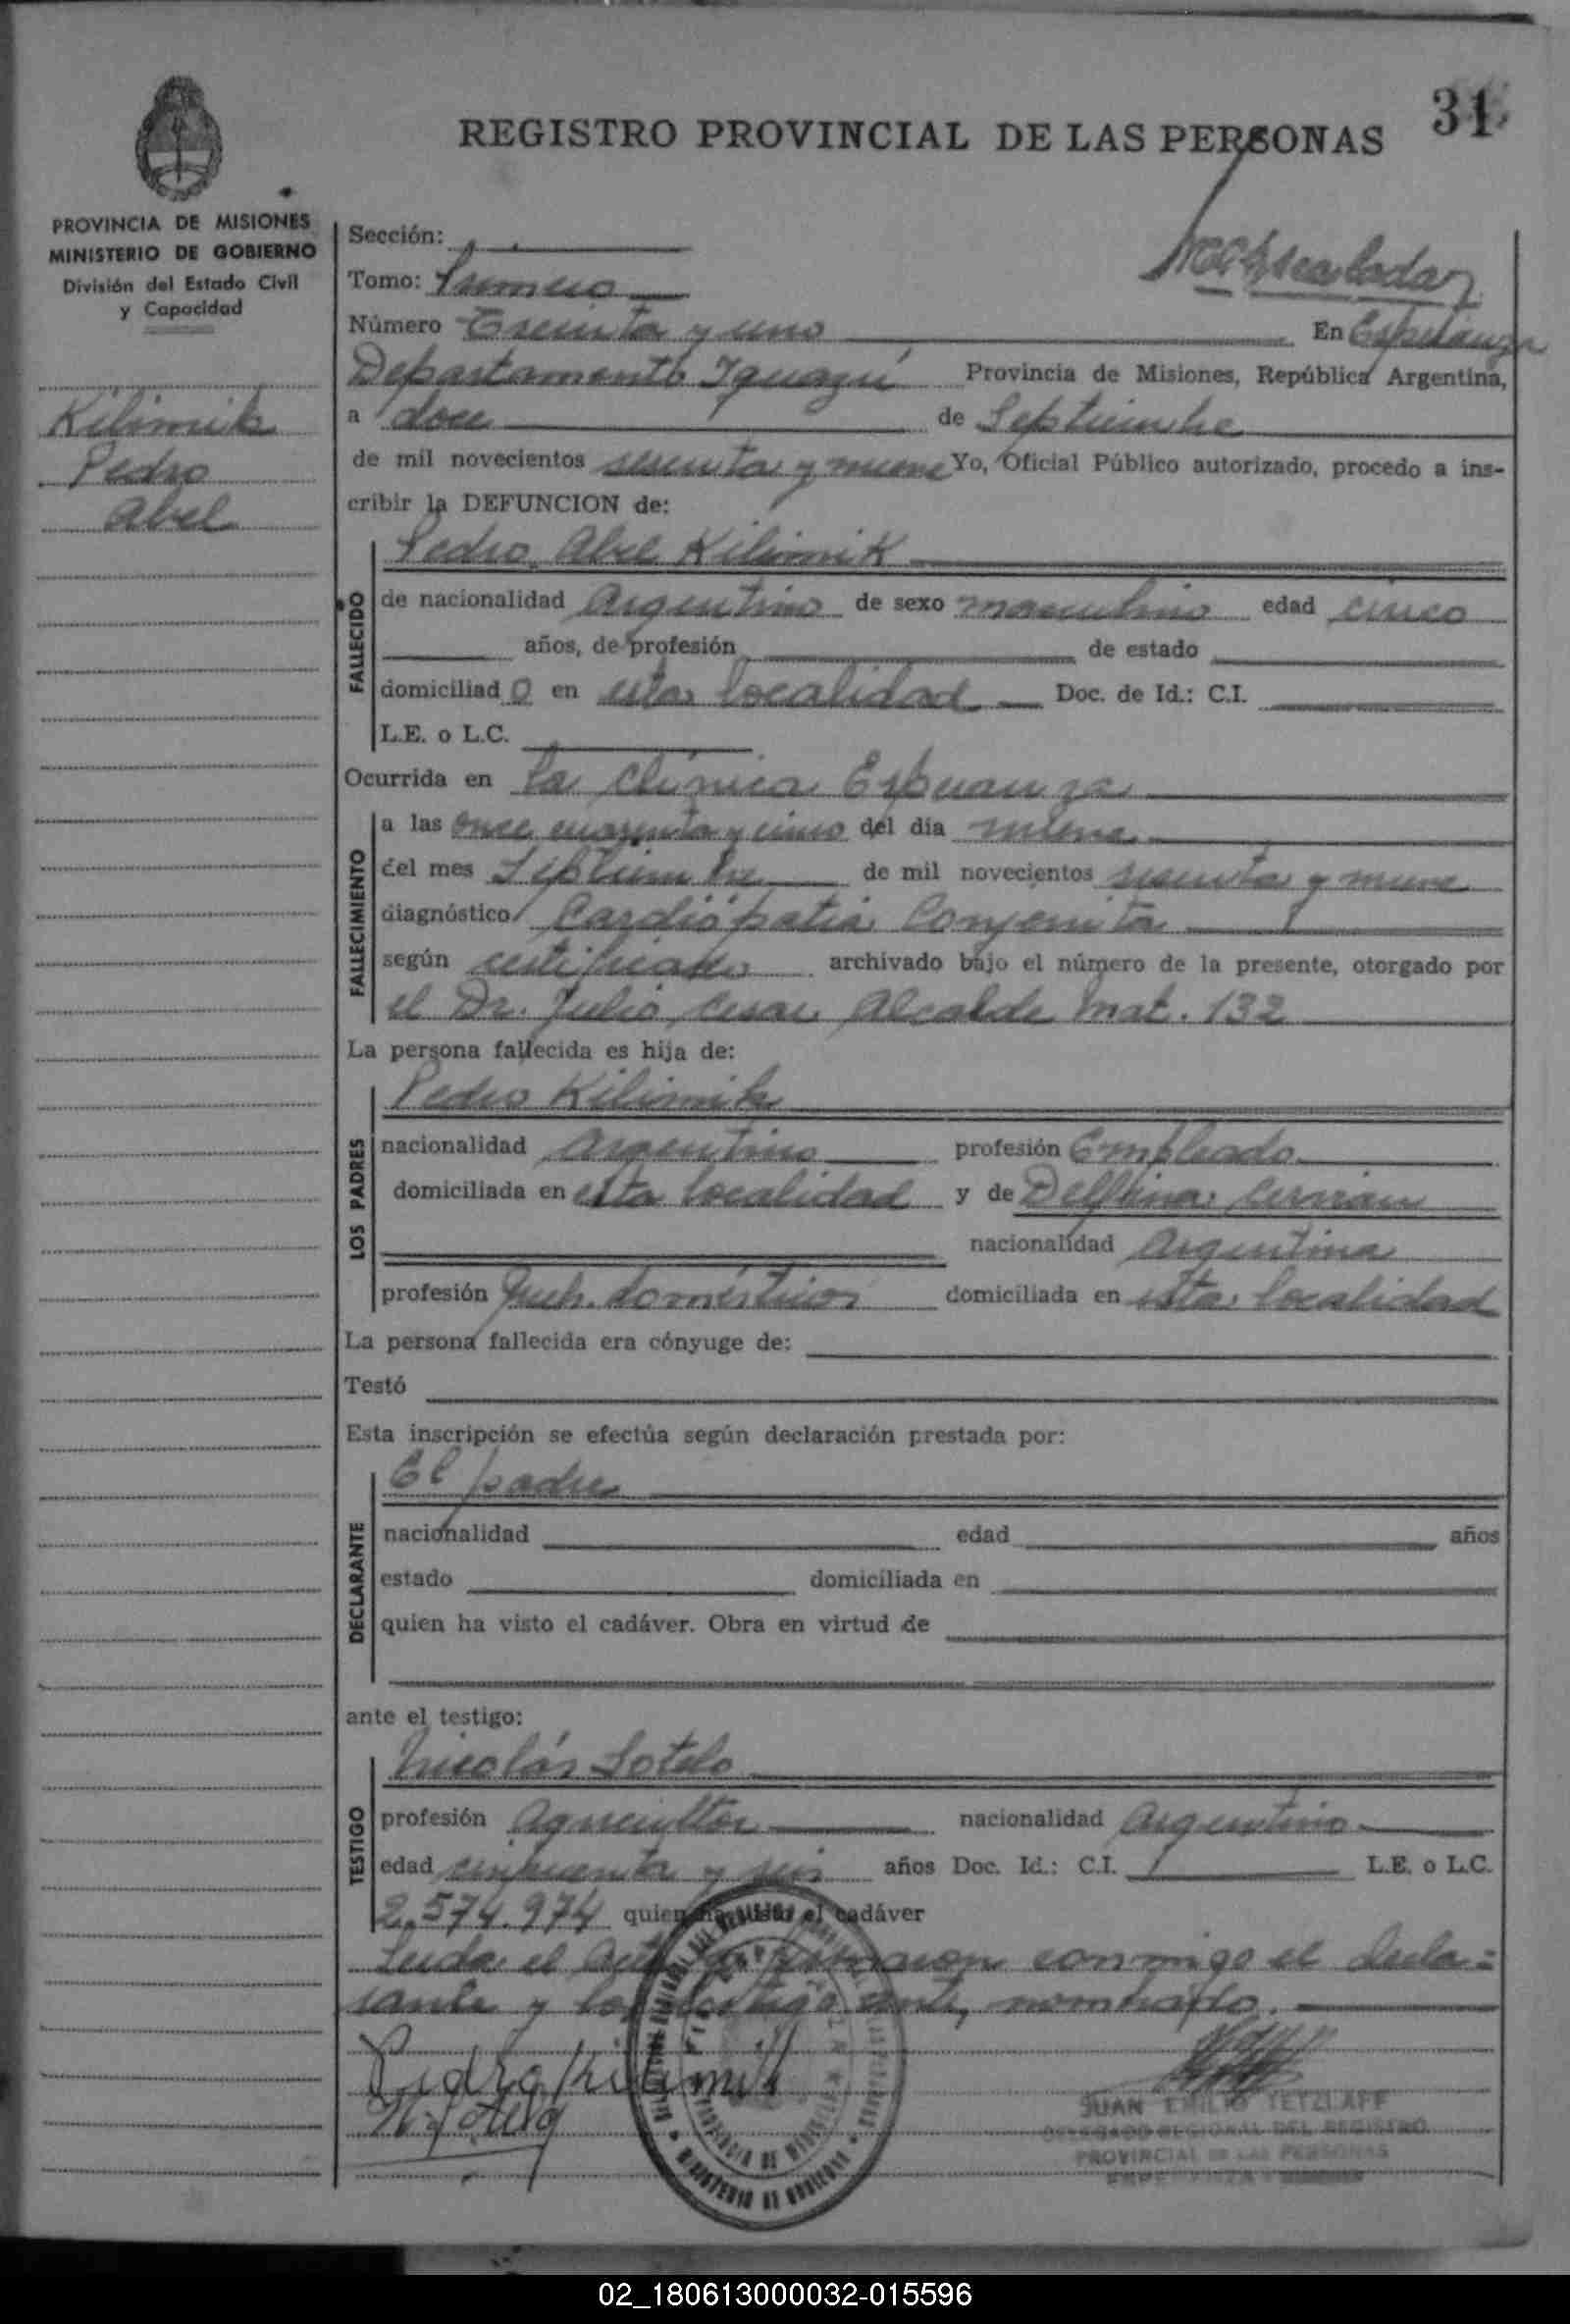 31
REGISTRO PROVINCIAL DE LAS PERSONAS
PROVINCIA DE MISIONES
MINISTERIO DE GOBIERNO
División del Estado Civil
y Capacidad
Kilimik
Pedro
Abel
Sección:
Tomo: Primero
Número Treinta y uno En Esperanza
Departamento Iguazú Provincia de Misiones, República Argentina,
a doce de Septiembre
de mil novecientos sesenta y nueve Yo, Oficial Público autorizado, procedo a ins-
cribir la DEFUNCION de:
Pedro Abel Kilimik
FALLECIDO
de nacionalidad Argentino de sexo masculino edad cinco
años, de profesión de estado
domiciliado en esta localidad Doc. de Id.: C.I.
L.E. o L.C.
Ocurrida en la Clínica Esperanza
FALLECIMIENTO
a las once cuarenta y cinco del día nueve
del mes Septiembre de mil novecientos sesenta y nueve
diagnóstico Cardiópatia Conjenita
según certificado archivado bajo el número de la presente, otorgado por
el Dr. Julio Cesar Alcalde Mat. 132
La persona fallecida es hija de:
Pedro Kilimik
LOS PADRES
nacionalidad Argentino profesión Empleado
domiciliada en esta localidad y de Delfina
nacionalidad Argentina
profesión Queh. domésticos domiciliada en esta localidad
La persona fallecida era cónyuge de:
Testó
Esta inscripción se efectúa según declaración prestada por:
El padre
DECLARANTE
nacionalidad edad años
estado domiciliada en
quien ha visto el cadáver. Obra en virtud de
ante el testigo:
Nicolás Sotelo
TESTIGO
profesión Agricultor nacionalidad Argentino
edad cincuenta y seis años Doc. Id.: C.I. L.E. o L.C.
2.574.974 quien ha visto el cadáver
Leida el Acta la firmaron conmigo el decla=
rante y los testigo ante nombrado.
Pedro Kilimik
N. Sotelo
JUAN EMILIO TETZLAFF
DELEGADO REGIONAL DEL REGISTRO
PROVINCIAL DE LAS PERSONAS
PROVINCIA DE MISIONES
MINISTERIO DE GOBIERNO
02_180613000032-015596